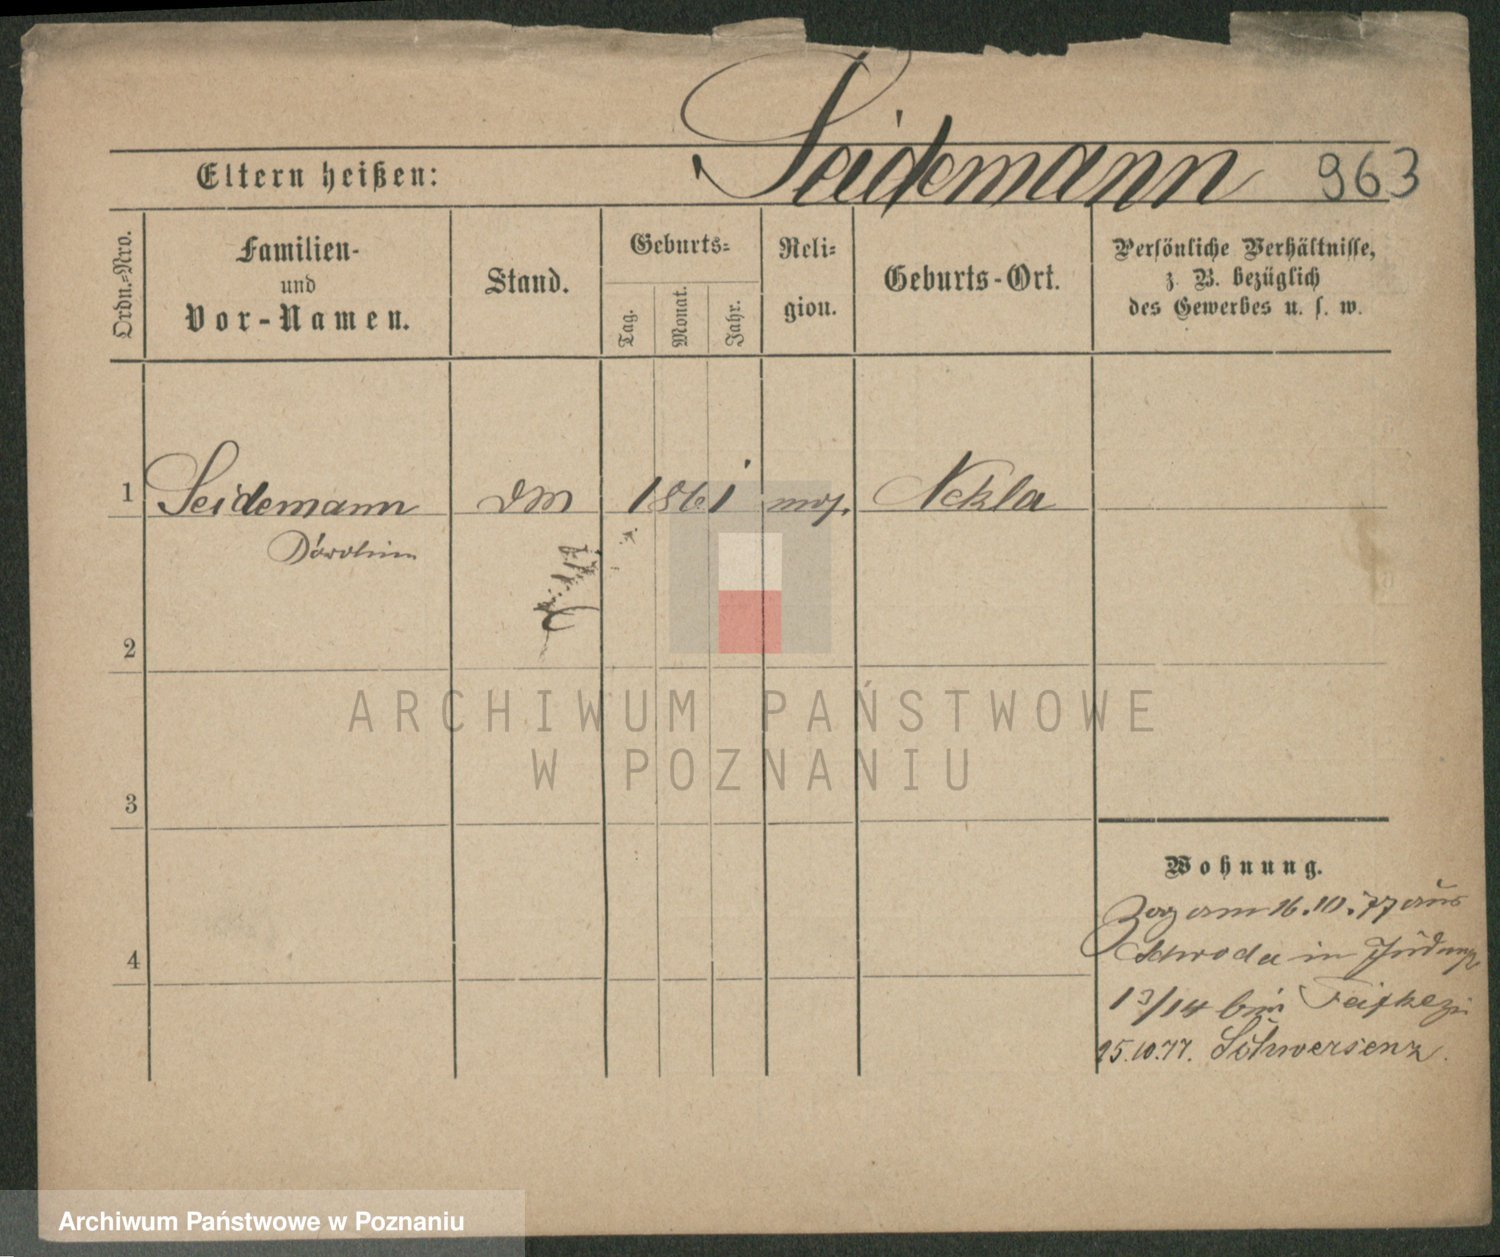 Seidemann 963
Eltern heißen:
Ordn.-Nro.
Familien-
und
Vor-Namen.
Stand.
Geburts-
Tag.
Monat.
Jahr.
Reli-
gion.
Geburts-Ort.
Persönliche Verhältnisse,
z. B. bezüglich
des Gewerbes u. s. w.
1 Seidemann DM 1861 mos. Nekla
2
3
4
ARCHIWUM PAŃSTWOWE
W POZNANIU
Wohnung.
Zog am 16.10.77 aus
Schroda in
13/14 bei
25.10.77. Schwersenz.
Archiwum Państwowe w Poznaniu